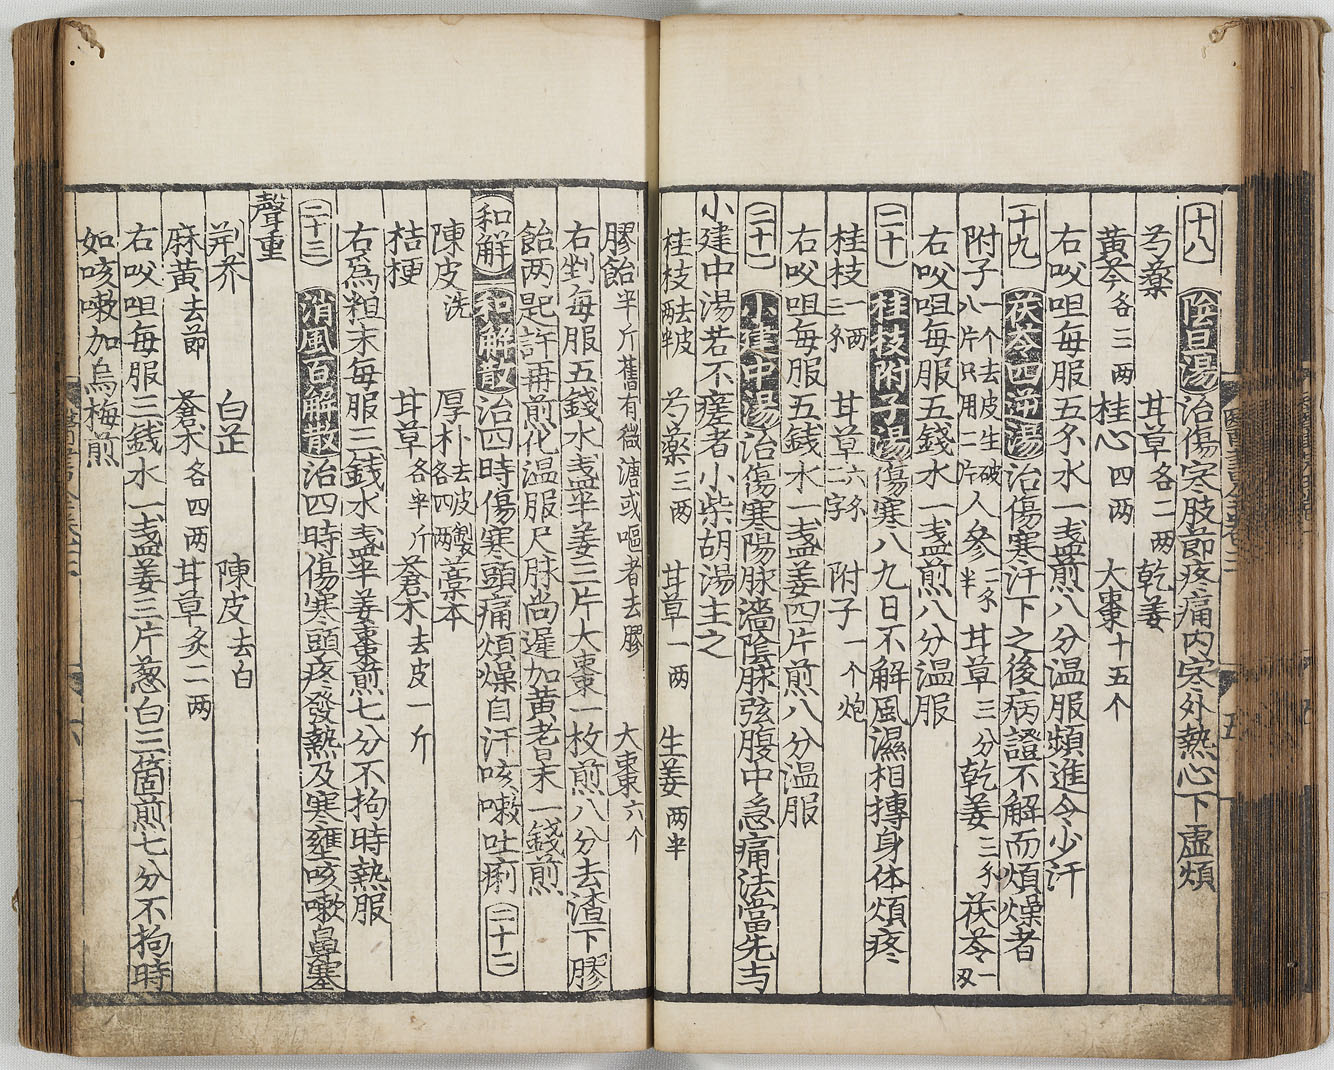 十八 陰旦湯治傷寒肢節疼痛內寒外熱心下虛煩
芍藥 甘草各二兩 乾姜
黄芩各三兩 桂心四兩 大棗十五个
右㕮咀每服五錢水一盞煎八分温服頻進令少汗
十九 茯苓四逆湯治傷寒汗下之後病證不解而煩燥者
附子一个去皮生破八片只用二片 人參一錢半 甘草三分 乾姜三錢 茯苓一兩
右㕮咀每服五錢水一盞煎八分温服
二十 桂枝附子湯傷寒八九日不解風濕相摶身体煩疼
桂枝一兩三錢 甘草六錢二字 附子一个炮
右㕮咀每服五錢水一盞姜四片煎八分温服
二十一 小建中湯治傷寒陽脉濇陰脉弦腹中急痛法當先与
小建中湯若不瘥者小柴胡湯主之
桂枝去皮兩半 芍藥三兩 甘草一兩 生姜兩半
膠飴半斤舊有微溏或嘔者去膠 大棗六个
右剉每服五錢水盞半姜三片大棗一枚煎八分去渣下膠
飴两匙許再煎化温服尺脉尚遲加黄老末一錢煎
和解 和解散治四時傷寒頭痛煩燥自汗咳嗽吐痢 二十二
陳皮洗 厚朴去皮製各四兩 藁本
桔梗 甘草各半斤 蒼朮去皮一斤
右為粗末每服三錢水盞半姜棗煎七分不拘時熱服
二十三 消風百解散治四時傷寒頭疼發熱及寒壅咳嗽鼻塞
聲重
荆芥 白芷 陳皮去白
麻黄去節 蒼朮各四兩 甘草炙二兩
右㕮咀每服三錢水一盞姜三片葱白三箇煎七分不拘時
如咳嗽加烏梅煎